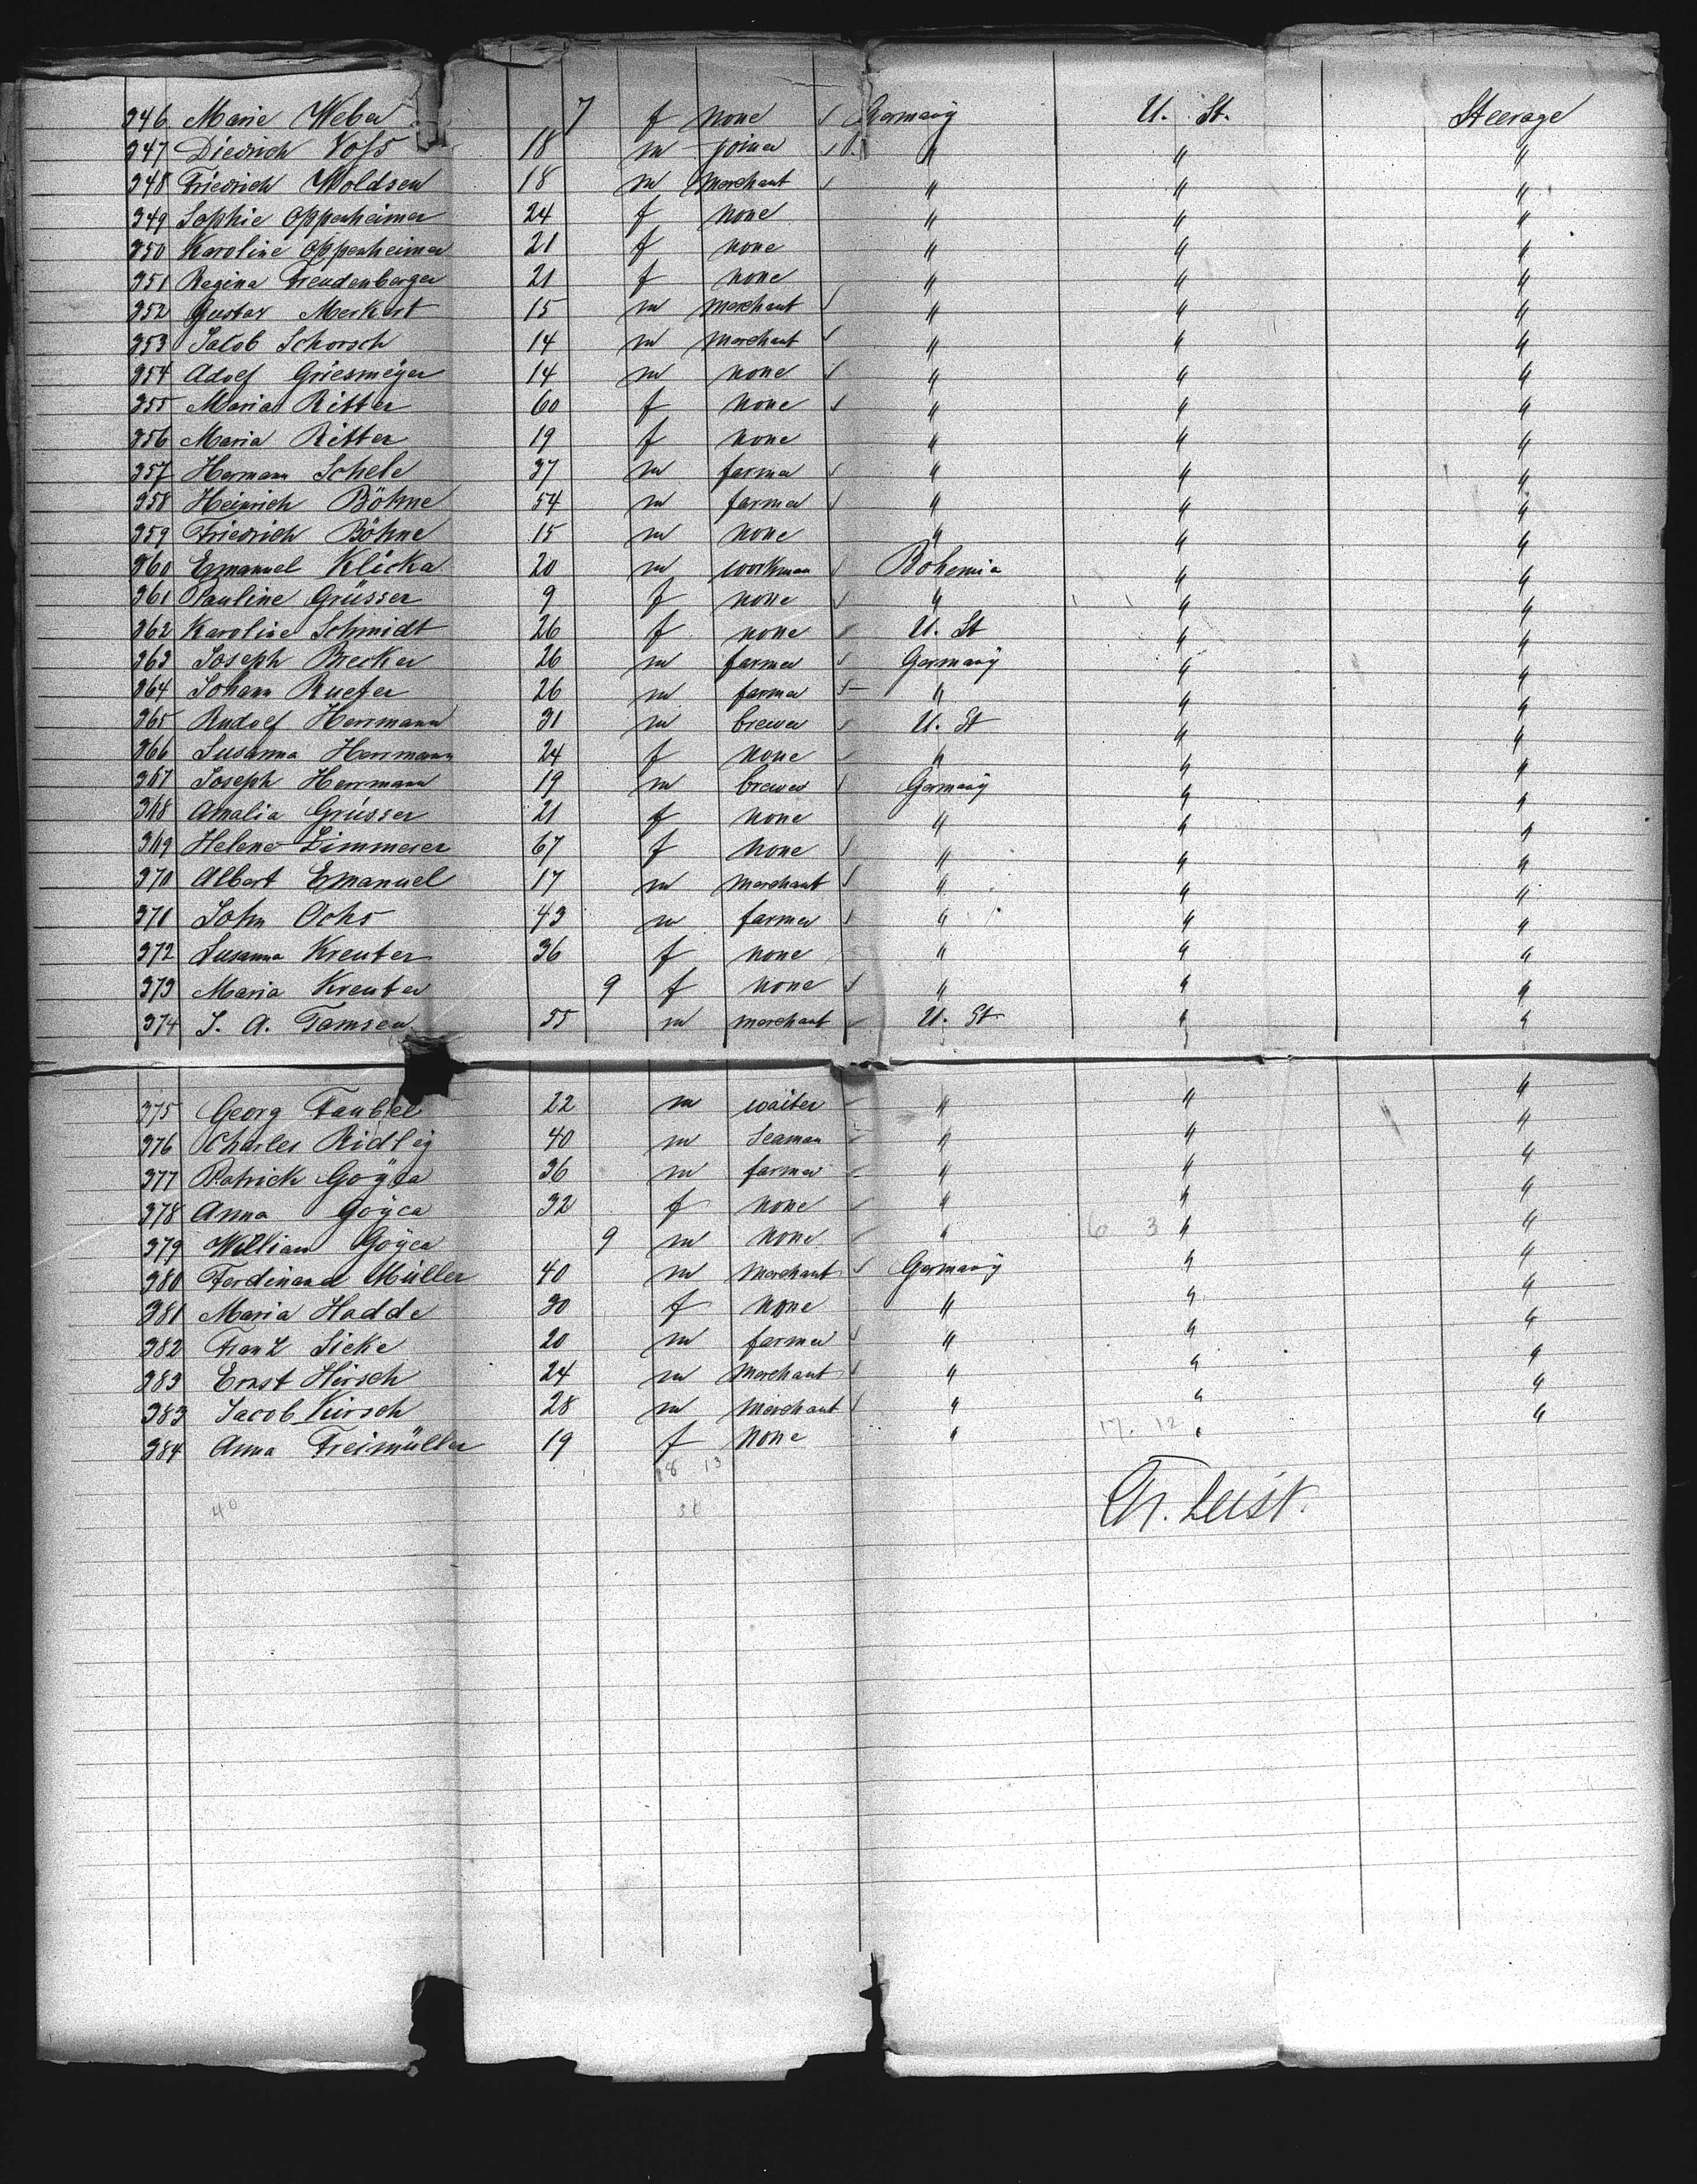 346 Marie Weber 7 f none Germany U. St. Steerage
347 Diedrich Voss 18 m joiner " " "
348 Friedrich Woldsen 18 m merchant " " "
349 Sophie Oppenheimer 24 f none " " "
350 Karoline Oppenheimer 21 f none " " "
351 Regina Freudenberger 21 f none " " "
352 Gustav Merkert 15 m merchant " " "
353 Jacob Schorsch 14 m merchant " " "
354 Adolf Griesmeyer 14 m none " " "
355 Maria Ritter 60 f none " " "
356 Maria Ritter 19 f none " " "
357 Hermann Schele 37 m farmer " " "
358 Heinrich Böhne 54 m farmer " " "
359 Friedrich Böhne 15 m none " " "
360 Emanuel Klicka 20 m workman Bohemia " "
361 Pauline Grüsser 9 f none " " "
362 Karoline Schmidt 26 f none U. St " "
363 Joseph Brecker 26 m farmer Germany " "
364 Johann Rueter 26 m farmer " " "
365 Rudolf Herrmann 31 m brewer U. St " "
366 Susanna Herrmann 24 f none " " "
367 Joseph Herrmann 19 m brewer Germany " "
368 Amalia Grüsser 21 f none " " "
369 Helene Zimmerer 67 f none " " "
370 Albert Emanuel 17 m merchant " " "
371 John Ochs 43 m farmer " " "
372 Susanna Kreuter 36 f none " " "
373 Maria Kreuter 9 f none " " "
374 J. A. Tamsen 55 m merchant U. St. " "
375 Georg Faubel 22 m waiter " " "
376 Charles Ridley 40 m Seaman " " "
377 Patrick Goyca 36 m farmer " " "
378 Anna Goyca 32 f none " " "
379 William Goyca 9 m none " 6 3 " "
380 Ferdinand Müller 40 m merchant Germany " "
381 Maria Hadde 30 f none " " "
382 Franz Sicke 20 m farmer " " "
383 Ernst Hirsch 24 m merchant " " "
383 Jacob Kirsch 28 m merchant " " "
384 Anna Freimüller 19 f none " 17. 12 "
18 13
Chr. Leist.
40